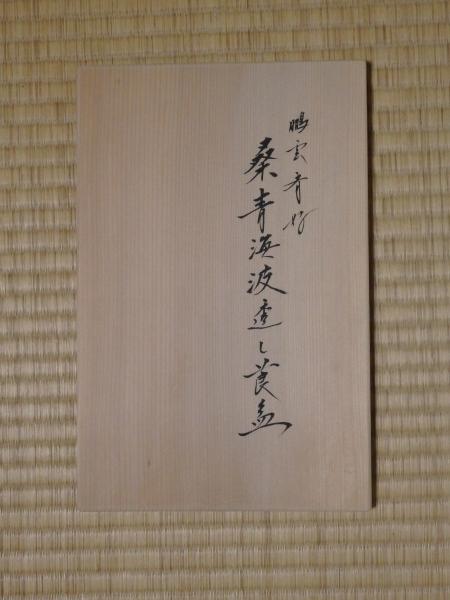 鵬雲斎好
桑青海波透し莨盆